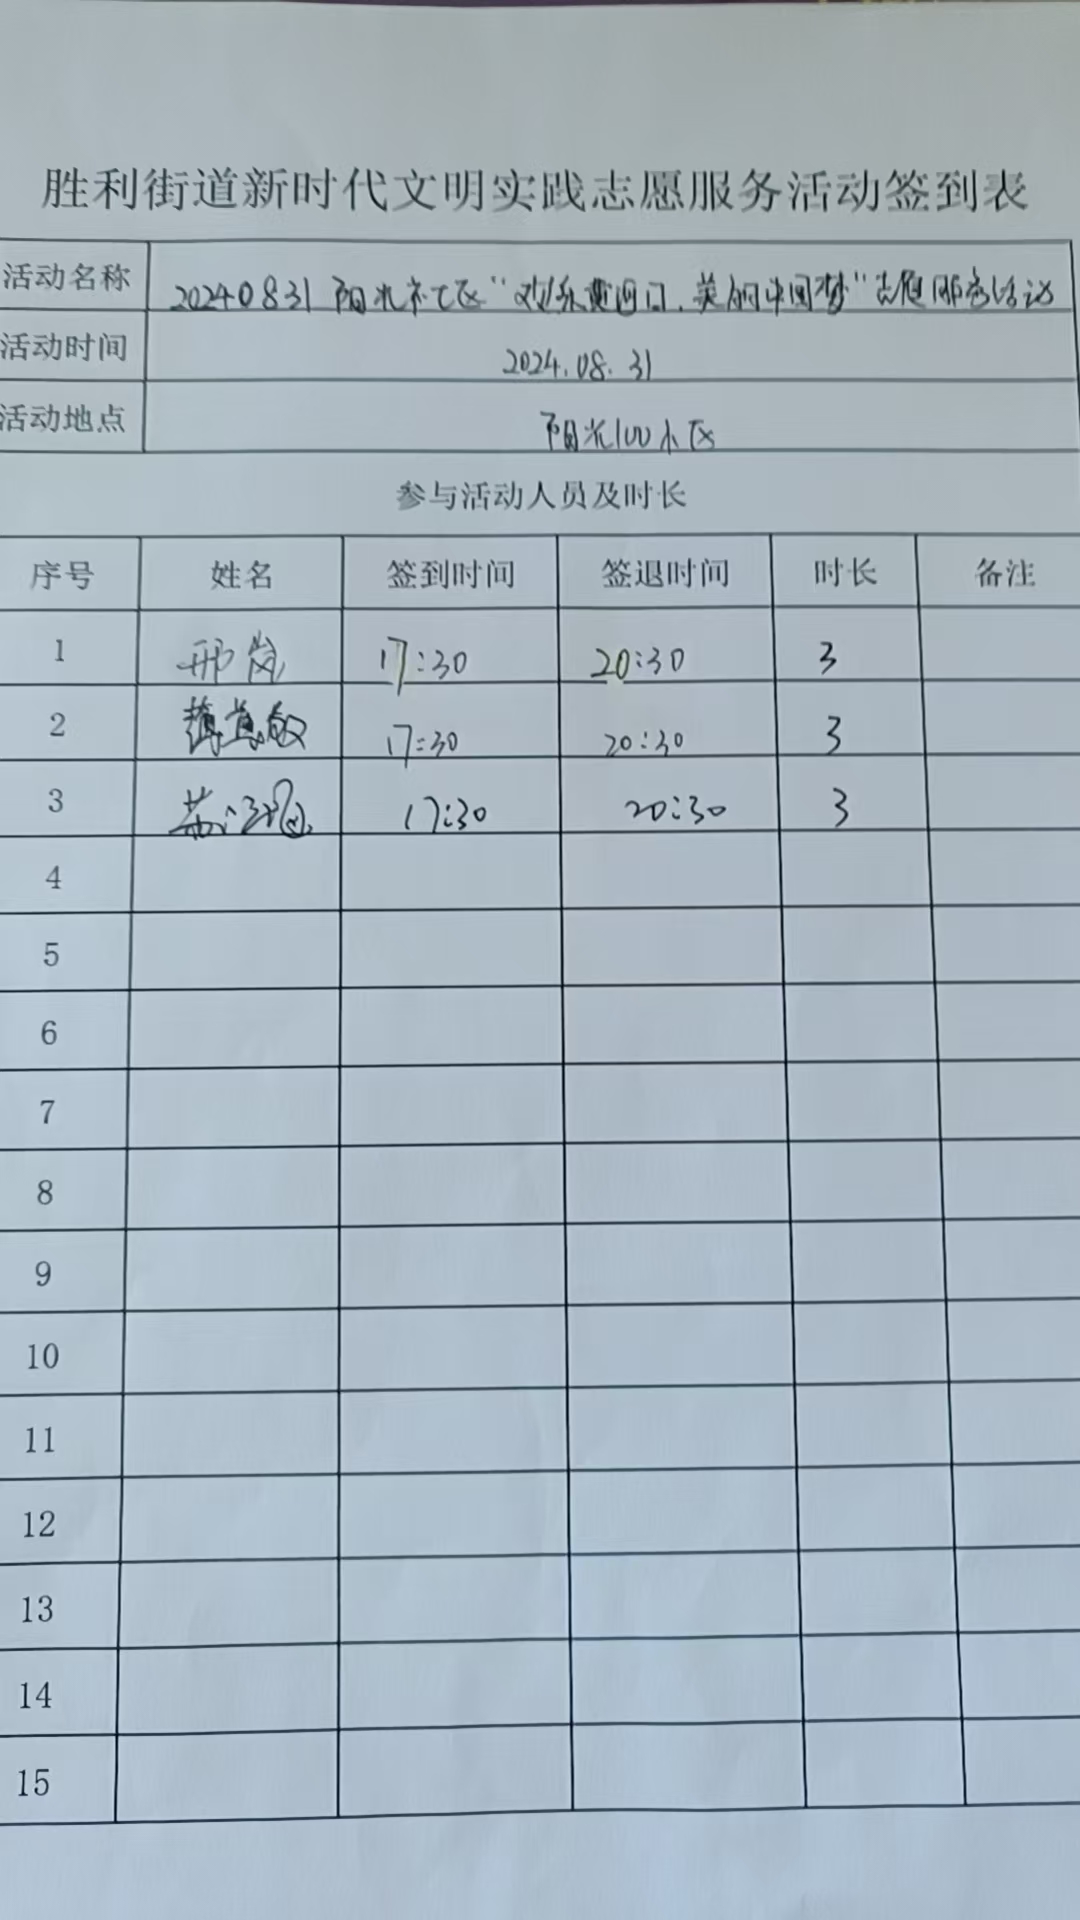 胜利街道新时代文明实践志愿服务活动签到表
活动名称 20240831 阳光社区“欢乐黄河口,美的中国梦”志愿服务活动
活动时间 2024.08.31
活动地点 阳光100小区
参与活动人员及时长
序号 姓名 签到时间 签退时间 时长 备注
1 邢岚 17:30 20:30 3
2 17:30 20:30 3
3 17:30 20:30 3
4
5
6
7
8
9
10
11
12
13
14
15